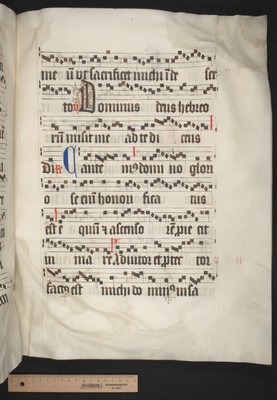 me u ut sacrificet michi i de ser
to Dominus deus hebreo
ru misit me ad te di cens
Di Cante mus domi no glori
o se eni honori fica tus
est e quu & ascenso re pie cit
in ma re Adiutor et ptec tor
factus est michi do minus in sa